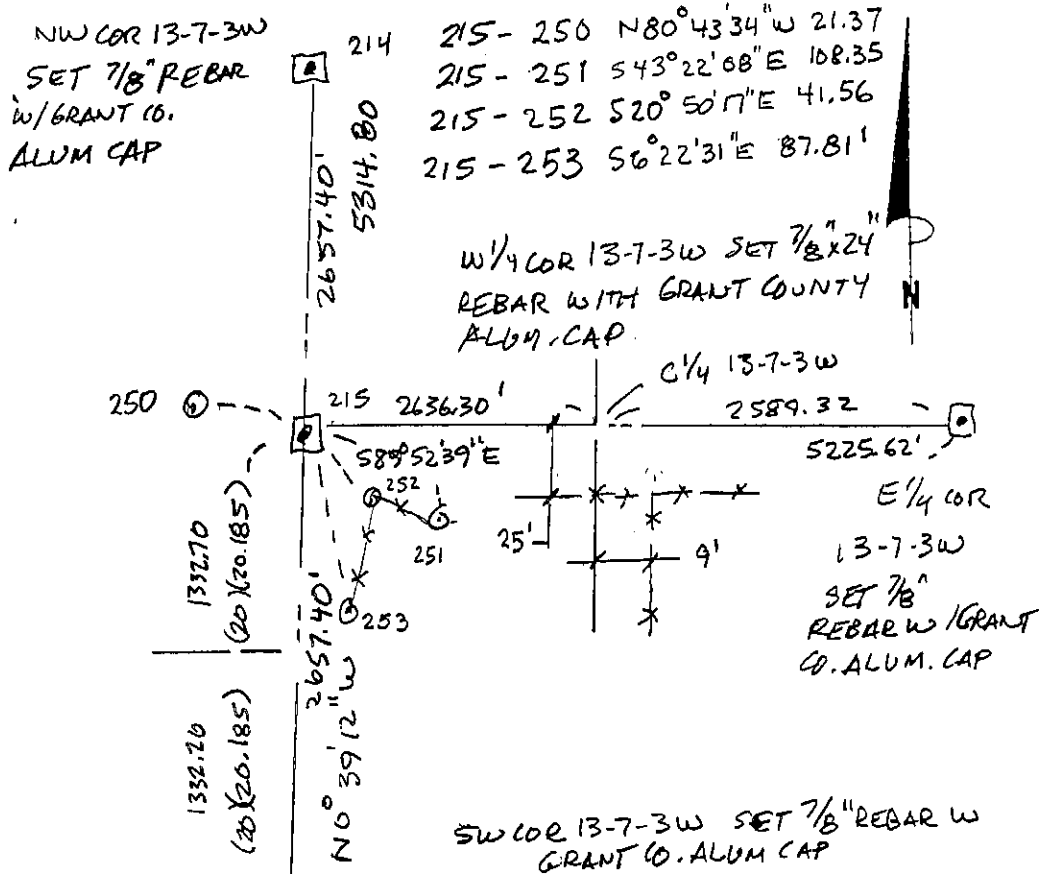 NW COR 13-7-3W
SET 7/8" REBAR
W/GRANT CO.
ALUM CAP
214
215 - 250 N80°43'34"W 21.37
215 - 251 S43°22'08"E 108.35
215 - 252 S20°50'17"E 41.56
215 - 253 S6°22'31"E 87.81'
2657.40'
5314.80
W 1/4 COR 13-7-3W SET 7/8"x24"
REBAR WITH GRANT COUNTY
ALUM. CAP
N
C 1/4 13-7-3W
250
215
2636.30'
2589.32
S89°52'39"E
5225.62'
252
251
253
25'
9'
E 1/4 COR
13-7-3W
SET 7/8"
REBAR W/GRANT
CO. ALUM. CAP
1332.70
(20)(20.185)
2657.40'
1332.20
(20)(20.185)
N0°39'12"W
SW COR 13-7-3W SET 7/8" REBAR W
GRANT CO. ALUM CAP